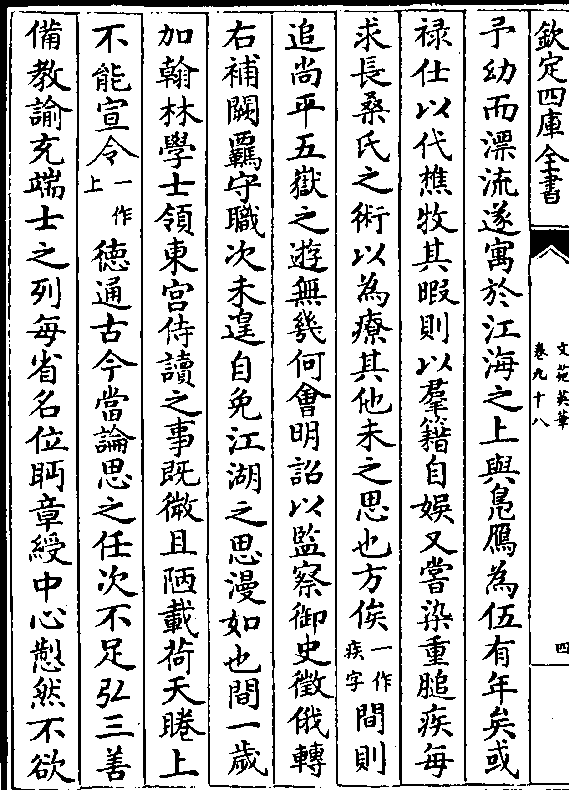 欽定四庫全書
文苑英華
卷九十八
四
予幼而漂流遂寓於江海之上與鳬鴈為伍有年矣或
禄仕以代樵牧其暇則以羣籍自娛又嘗染重膇疾每
求長桑氏之術以為療其他未之思也方俟一作疾字間則
追尚平五嶽之遊無幾何會明詔以監察御史徵俄轉
右補闕羈守職次未遑自免江湖之思漫如也間一歲
加翰林學士領東宫侍讀之事既微且陋載荷天睠上
不能宣令一作上徳通古今當論思之任次不足弘三善
備教諭充端士之列每省名位眄章綬中心愸然不欲